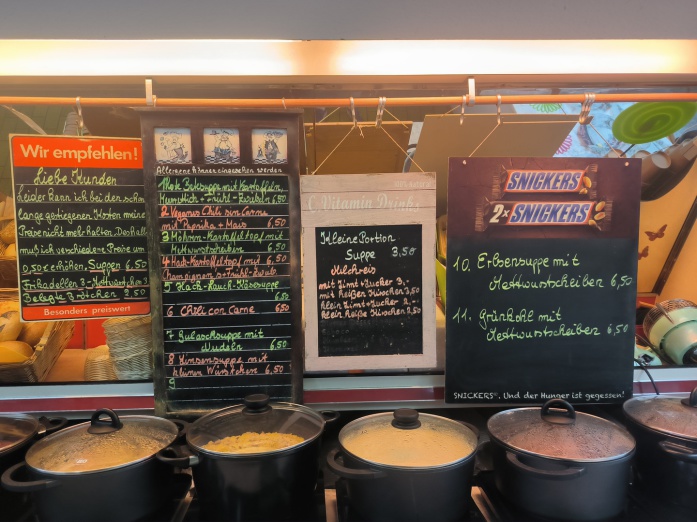 Wir empfehlen!
Liebe Kunden
Leider kann ich bei den schon
lange gestiegenen Kosten meine
Preise nicht mehr halten. Deshalb
muß ich verschiedene Preise um
0,50 € erhöhen. Suppen 6.50
Frikadellen 3.- Mettwurst
Belegte Brötchen 2.50
Besonders preiswert
Allergene können eingesehen werden
mit Kartoffeln,
6,50
2 Veganes Chili sin Carne
mit Paprika + Mais 6,50
3 Möhren-Kartoffeltopf mit
Mettwurstscheiben 6,50
4 Hack-Kartoffeltopf mit
Champignons
5 Hack-Lauch-Käsesuppe
6,50
6 Chili con Carne 6,50
7 Gulaschsuppe mit
Nudeln 6,50
8 Linsensuppe mit
kleinen Würstchen 6.50
9
C Vitamin Drinks
Kleine Portion
Suppe 3,50
Milchreis
mit Zimt + Zucker 3,-
mit heißen Kirschen 3,50
klein Zimt + Zucker
klein heiße Kirschen
SNICKERS
2x SNICKERS
10. Erbsensuppe mit
Mettwurstscheiben 6,50
11. Grünkohl mit
Mettwurstscheiben 6,50
SNICKERS®. Und der Hunger ist gegessen!